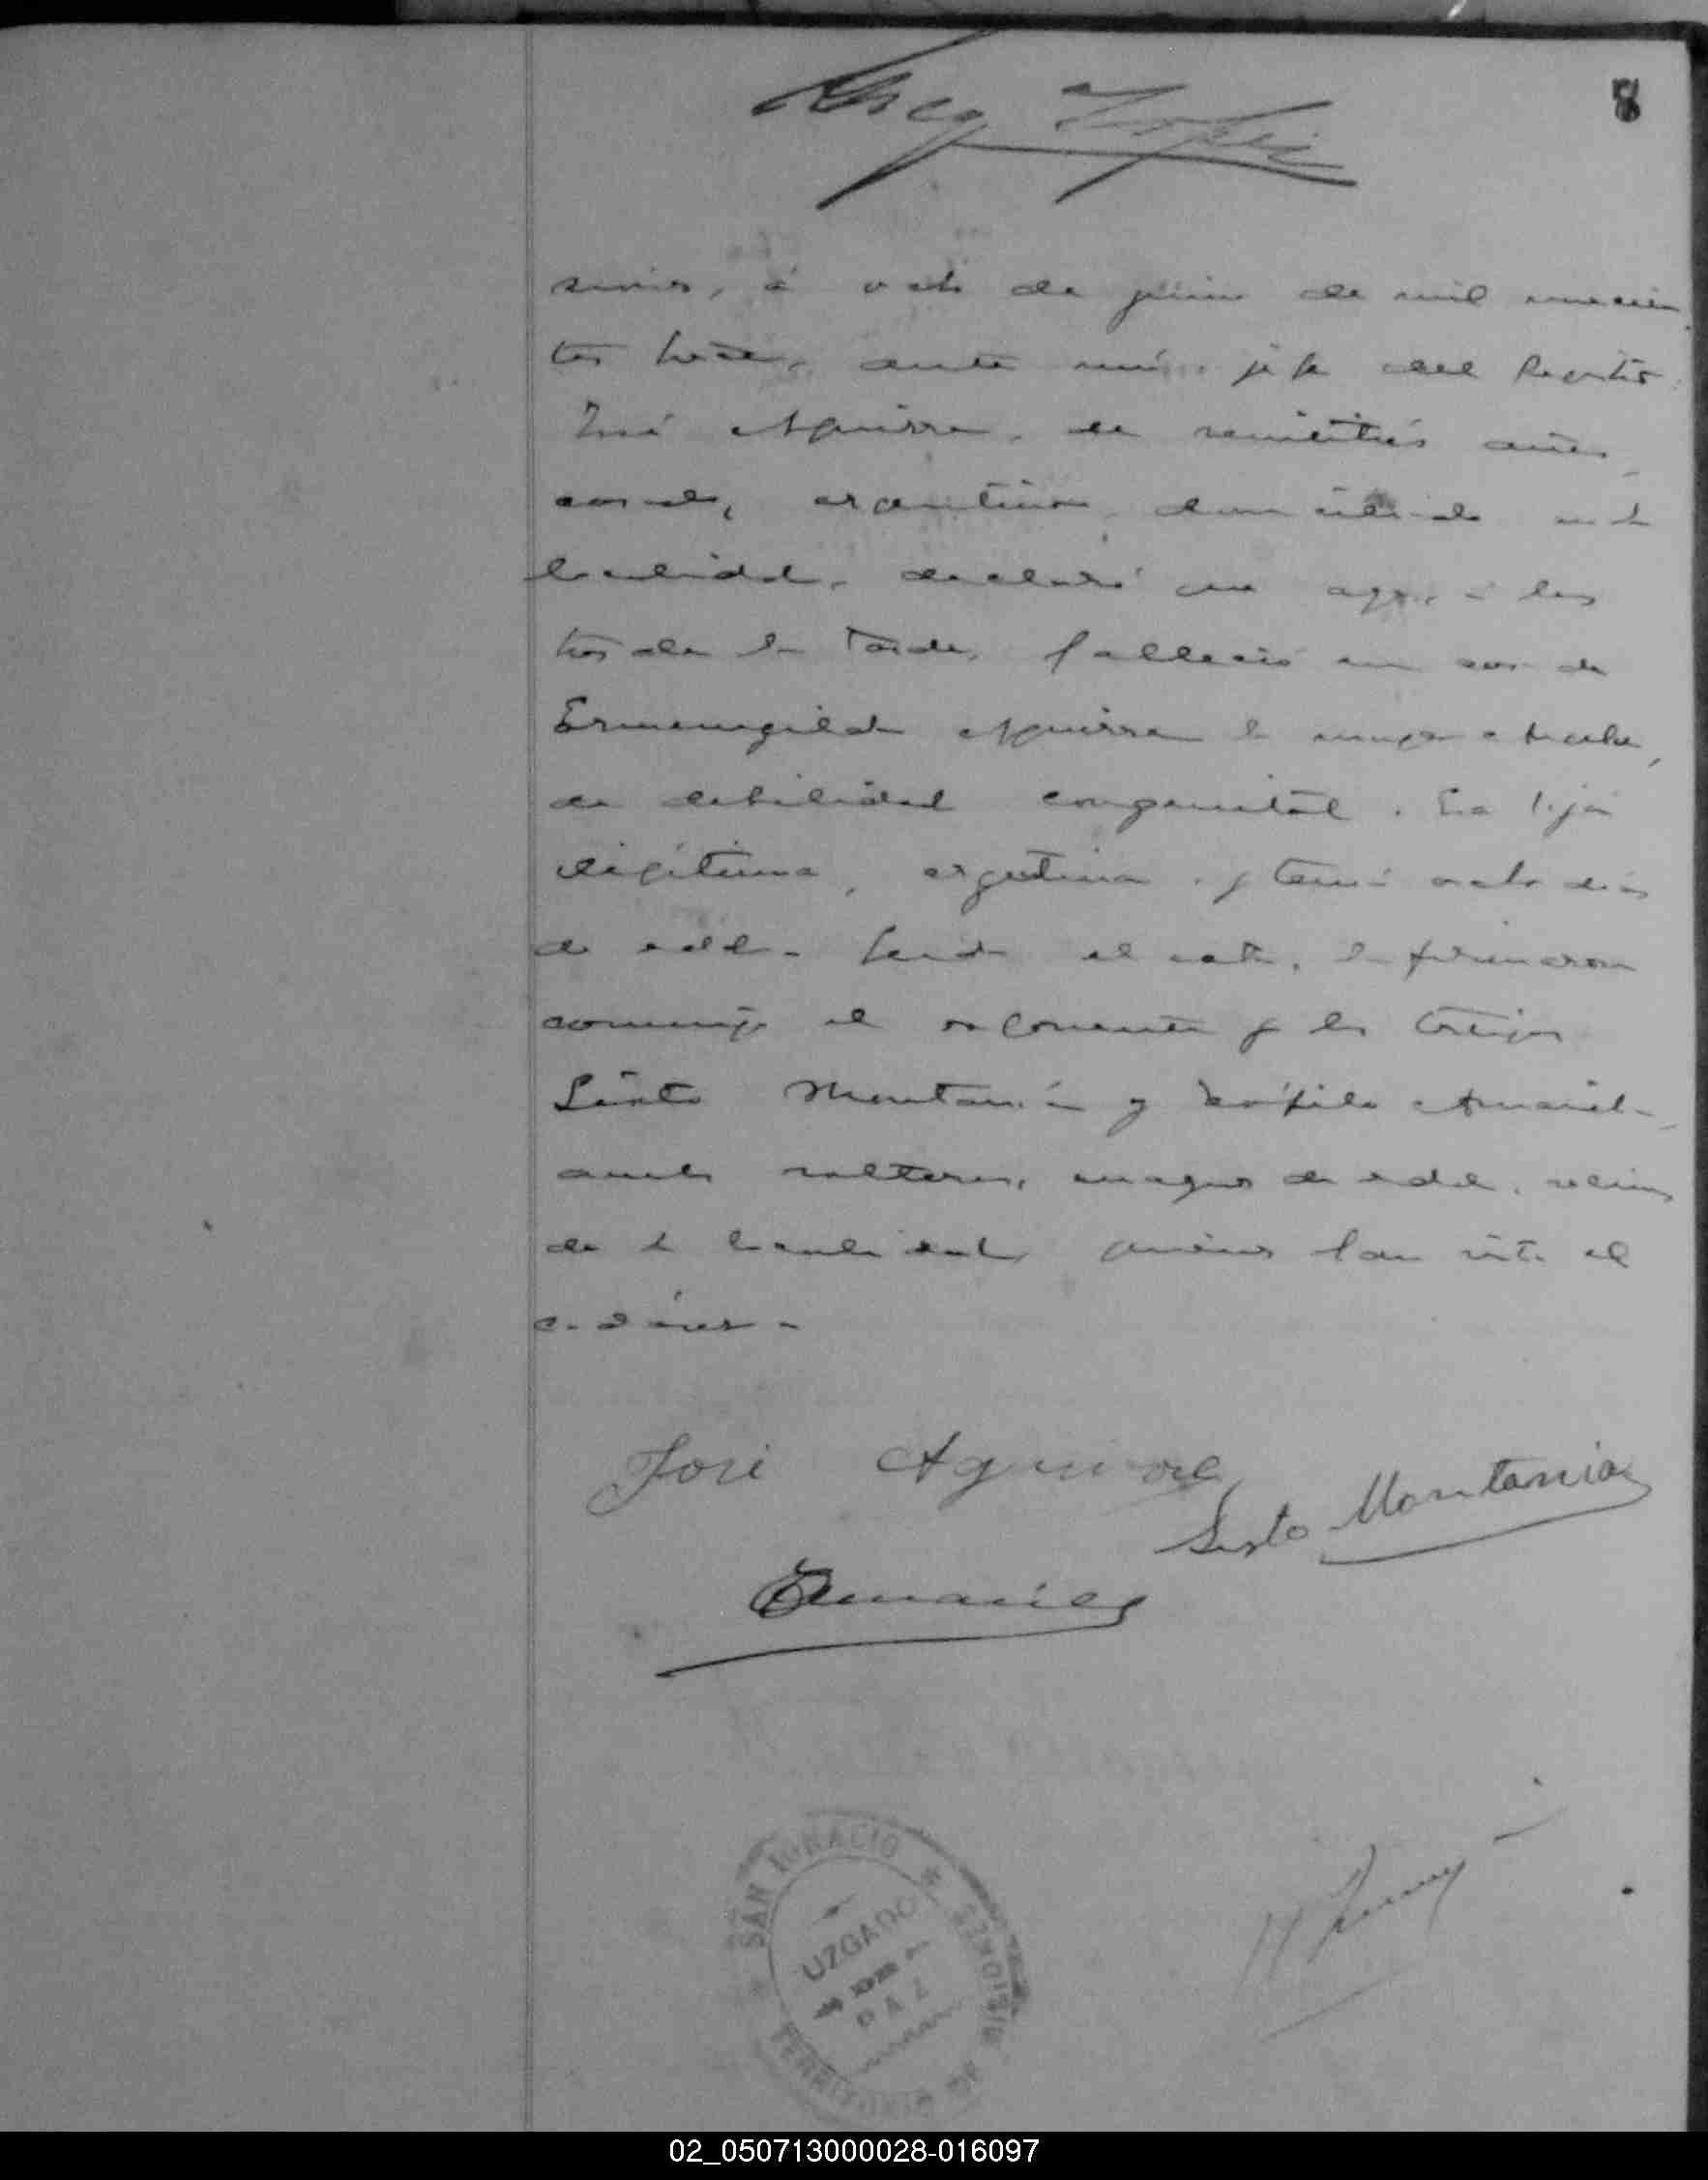 8
siones, á ocho de junio de mil novecien
tos trece, ante mí, jefe del Registro.
José Aguirre, de veintitrés años,
casado, argentino, domiciliado en la
localidad, declaró que ayer, á las
tres de la tarde, falleció en casa de
Ermenegildo Aguirre la mujer
de debilidad congenital. Era hija
legítima, argentina, y tenía ocho días
de edad. Leida el acta, la firmaron
conmigo el exponente y los testigos
Sixto Montania y Teófilo Amaril-
solteros, mayores de edad, vecinos
de la localidad, quienes han visto el
cadáver.-
José Aguirre
Sisto Montania
SAN IGNACIO
UZGADO
DE
PAZ
TERRITORIO DE MISIONES
02_050713000028-016097